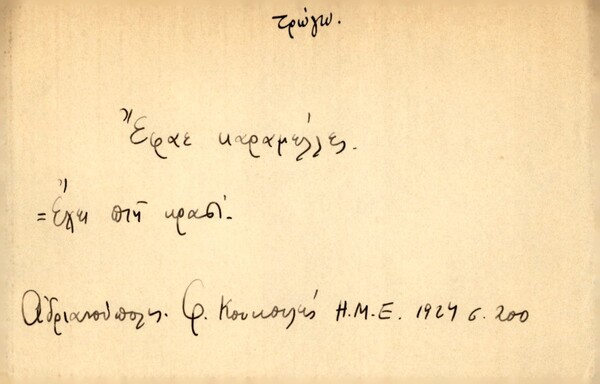 τρώγω.
Ἔφαε καραμέλλες.
= Ἔχει πιῇ κρασί.
Ἀδριανούπολις. Φ. Κουκουλές Η.Μ.Ε. 1924 σ. 200